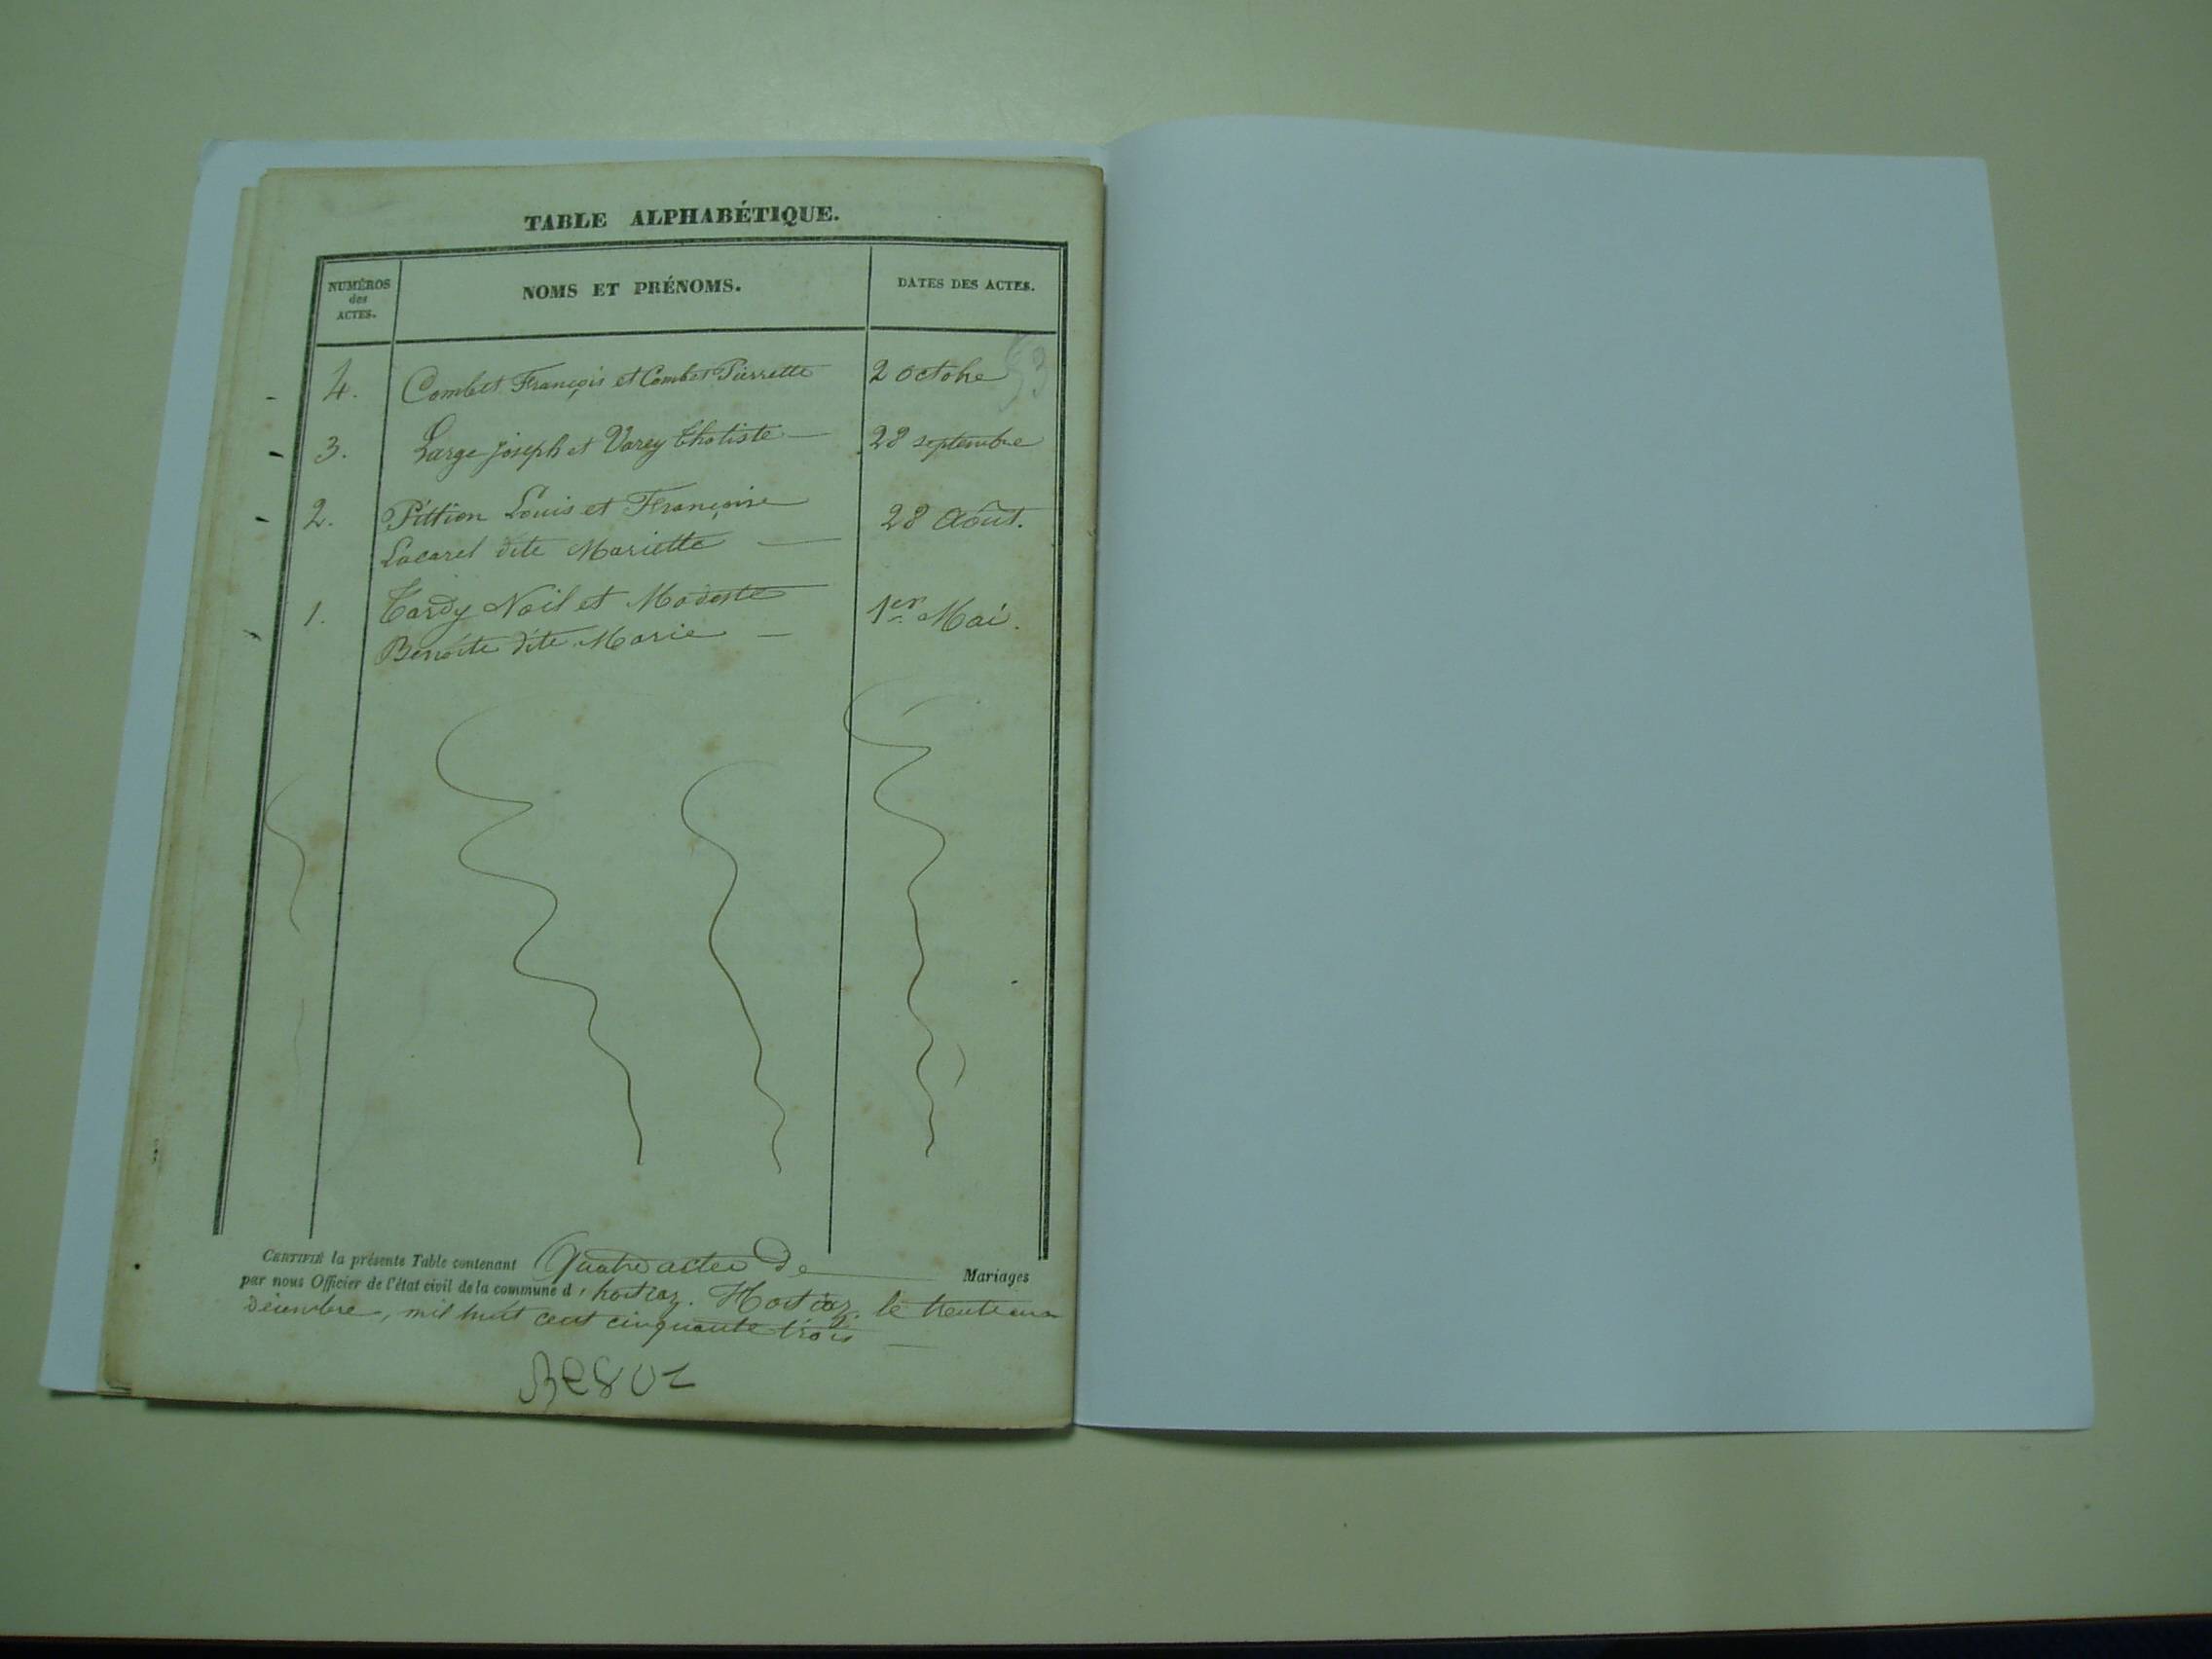 TABLE ALPHABÉTIQUE.
NUMÉROS
des
ACTES.
NOMS ET PRÉNOMS.
DATES DES ACTES.
53
4. Combet François et Combet Pierrette 2 octobre
3. Large joseph et Varey 28 septembre
2. Pittion Louis et Françoise 28 Août.
Lacarel dite Mariette
1. Tardy Noël et Modeste 1er Mai.
Benoite dite Marie
CERTIFIÉ la présente Table contenant Quatre actes de Mariages
par nous Officier de l'état civil de la commune d'hostiaz. Hostiaz. le trente un
décembre, mil huit cent cinquante trois